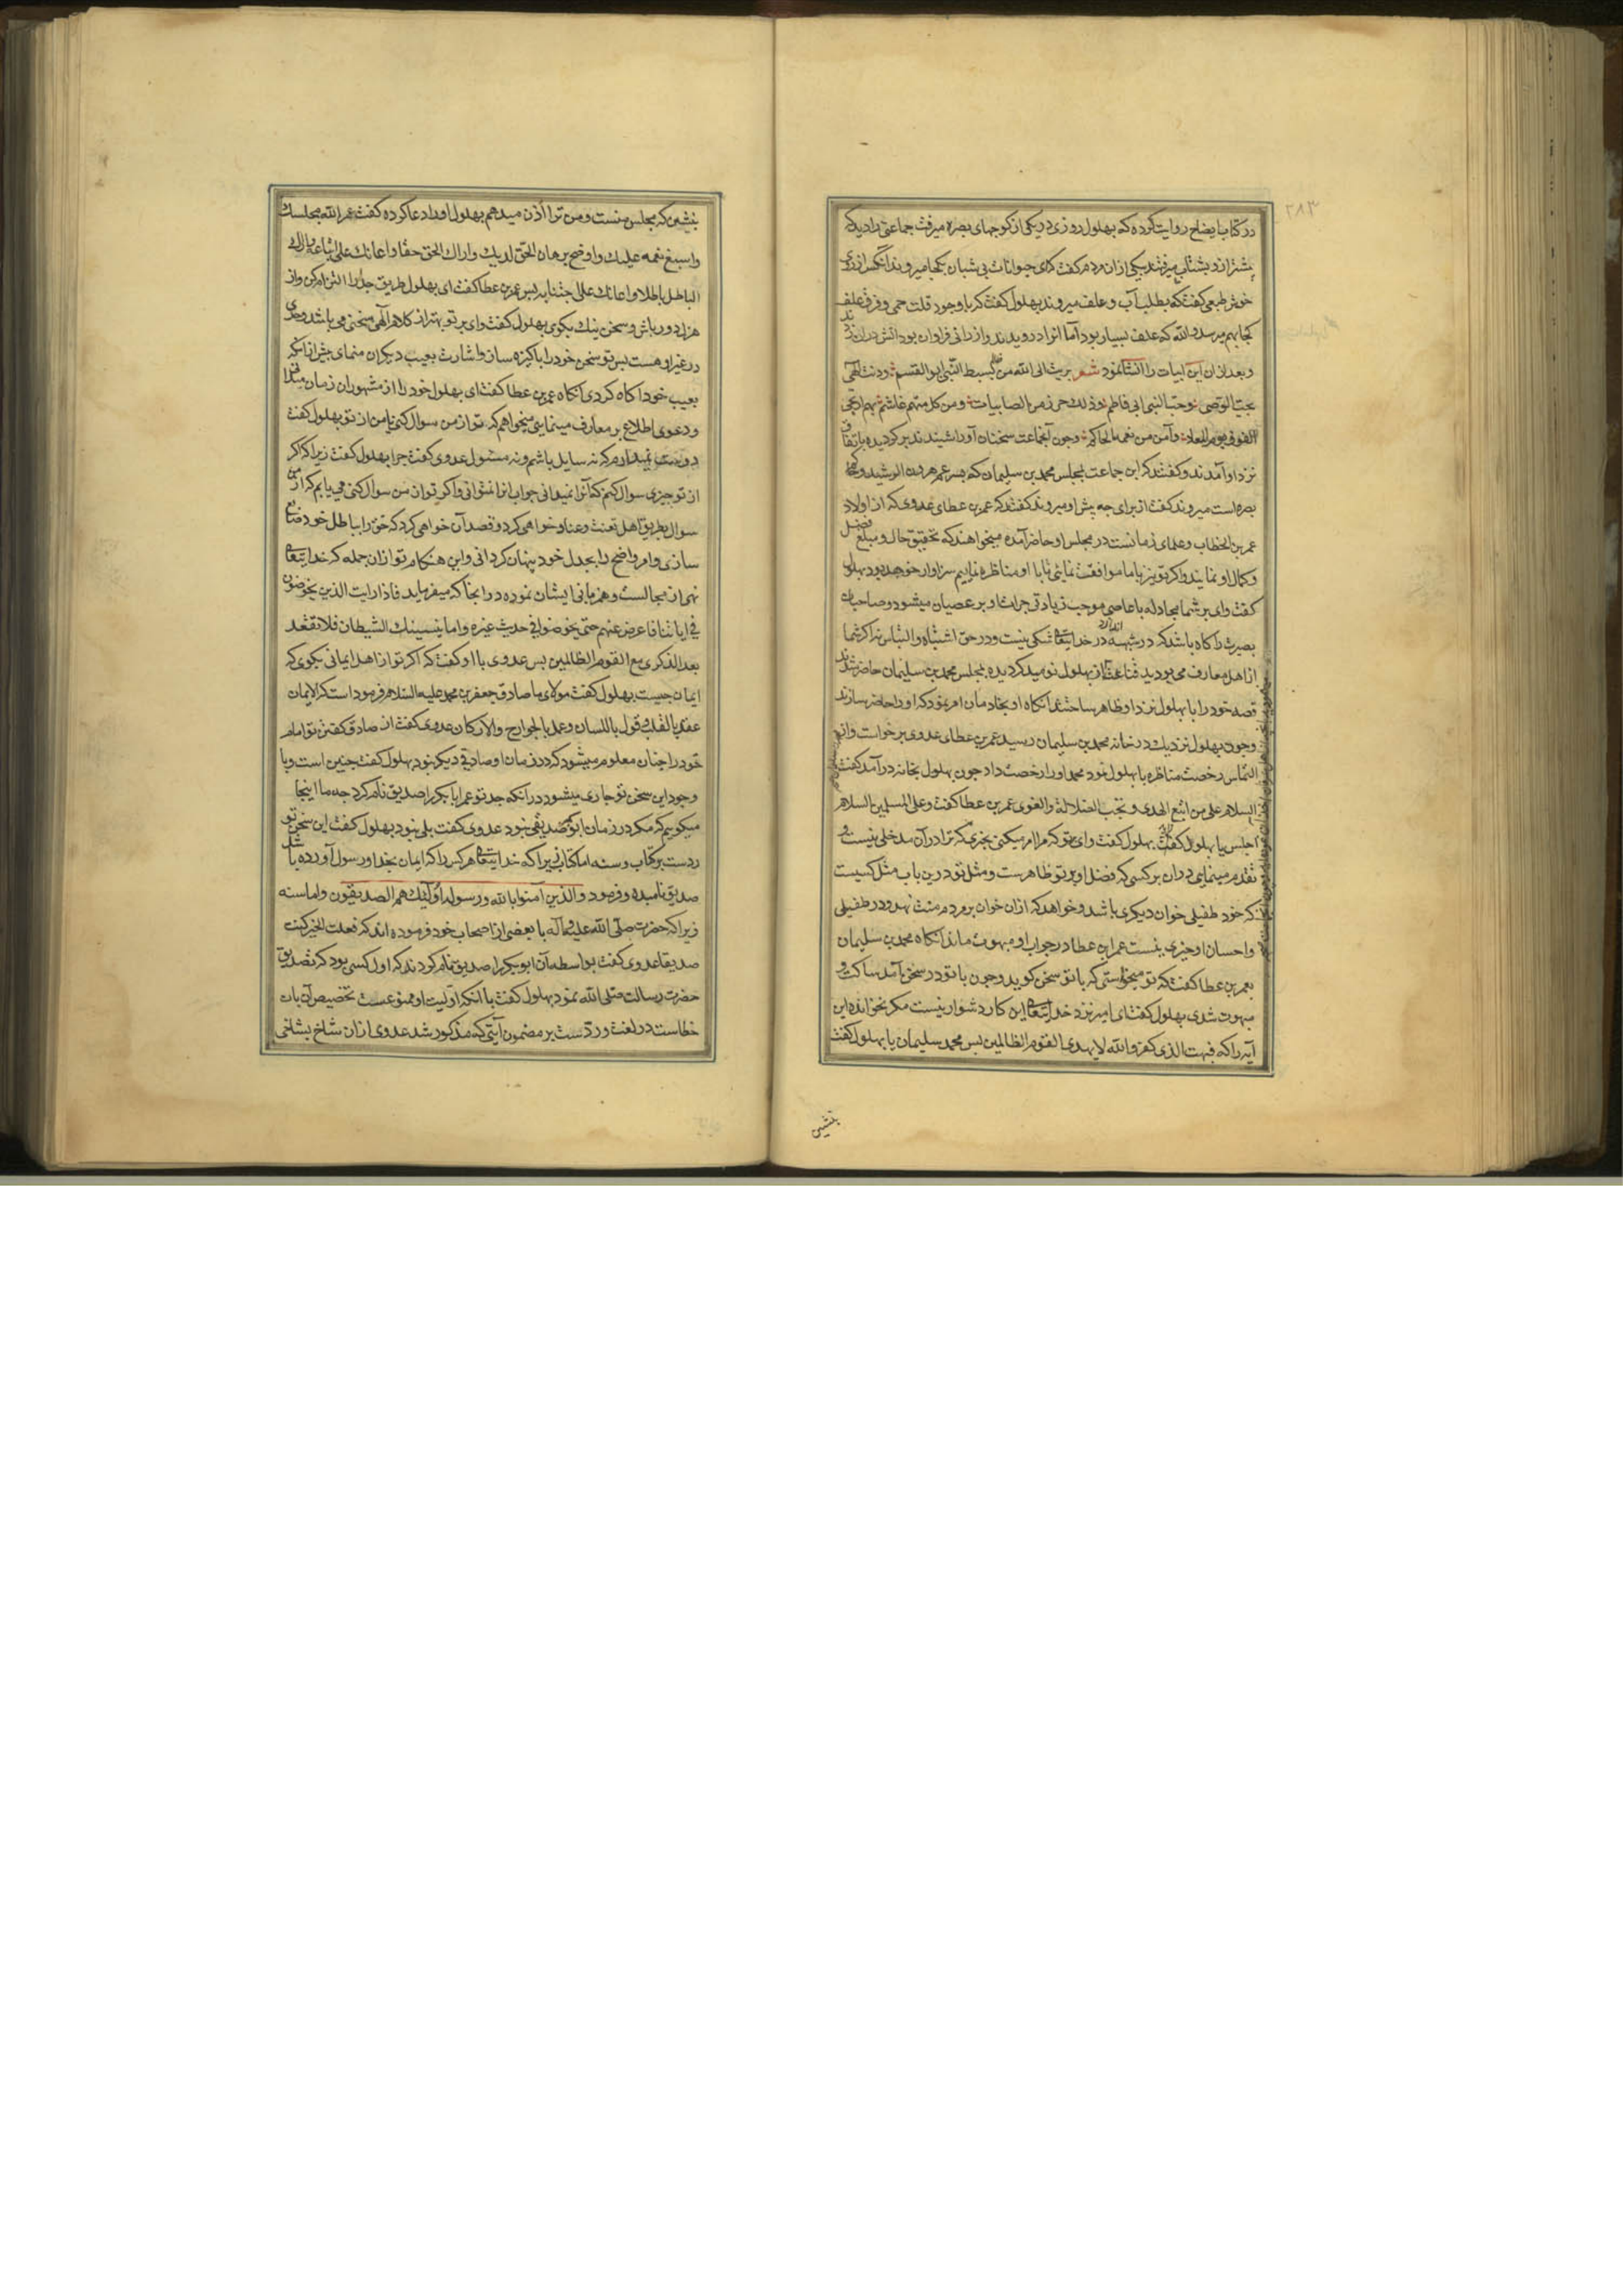 ۲۸۳
در کتاب ایضاح روایت کرده که بهلول روزی در یکی از کوچهای بصره میرفت جماعتی را دید که
بیشتر از و بشتاب میرفتند یکی از ان مردم کفت که ای حیوانات بی شبان بکجا میروند انکس از روی
خوش طبعی کفت که بطلب آب و علف میروند بهلول کفت که با وجود قلت حمی و فرق علف
کجا بهم میرسد والله که علف بسیار بود اما انرا درویدند و ارزانی فراوان بود اتش دران زدند
و بعد ازان این ابیات را انشا نمود شعر برئت الی الله من ظالم لسبط النبی ابو القسم ودنت الهی
بحب الوصی وحب النبی ابی فاطم وذلک حرز من النایبات ومن کل متهم غاشم بهم ارتجی
الفوز یوم المعاد وآمن من نقمه الحاکم وچون آنجماعت سخنان او را شنیدند برکردیده باتفاق
نزد او آمدند و کفتند که این جماعت بمجلس محمد بن سلیمان که پسر عم هرون الرشید و
بصره است میروند کفت از برای چه پیش او میروند کفتند که عمر بن عطای عدوی که از اولاد
عمر بن الخطاب و علمای زمانست در مجلس او حاضر آمده میخواهند که تحقیق حال و مبلغ فضل
و کمال او نمایند و اکر تو نیز با ما موافقت نمائی تا با او مناظره نماییم سزاوار خواهد بود بهلول
کفت وای بر شما مجادله با عاصی موجب زیادتی جرات او بر عصیان میشود و صاحبان
بصیرت را کاه باشد که در شبهه اندازد در خدایتعالی شکی نیست و در حق اشتباه و التباس نه اکر شما
از اهل معارف می بودید قناعت از بهلول نومید کردیده بمجلس محمد بن سلیمان حاضر شدند
قصه خود را با بهلول نزد او ظاهر ساختند انکاه او بخادمان امر نمود که او را حاضر سازند
و چون بهلول نزدیک در خانه محمد بن سلیمان رسید عمر بن عطای عدوی برخواست و از
التماس رخصت مناظره با بهلول نمود محمد او را رخصت داد چون بهلول بخانه در آمد کفت
السلام علی من اتبع الهدی و تجنب الضلالة والغوی عمر بن عطا کفت وعلی المسلمین السلام
اجلس یا بهلول کفت بهلول کفت وای بر تو که مرا امر میکنی بچیزی که ترا در آن مدخلی نیست و
تقدم مینمایی دران بر کسی که فضل او بر تو ظاهرست و مثل تو درین باب مثل کسیست
که خود طفیلی خوان دیکری باشد و خواهد که ازان خوان بر مردم منت نهد و در طفیلی
و احسان او چیزی نیست عمر ابن عطا در جواب او مبهوت ماند انکاه محمد بن سلیمان
بعمر بن عطا کفت که تو میخواستی که با تو سخن کوید و چون با تو در سخن آمد ساکت و
مبهوت شدی بهلول کفت ای امیر نزد خدایتعالی این کار دشوار نیست مکر نخوانده این
آیه را که فبهت الذی کفر والله لا یهدی القوم الظالمین پس محمد سلیمان با بهلول کفت
بنشین
بنشین که مجلس منست و من ترا اذن میدهم بهلول او را دعا کرده کفت عمر الله مجلسک
واسبغ نعمه علیک واوضح برهان الحق لدیک واراک الحق حقا واعانک علی اتباعه واراک
الباطل باطلا واعانک علی اجتنابه پس عمر بن عطا کفت ای بهلول طریق جد را التزام کن و از
هزل دور باش و سخن نیک بکوی بهلول کفت وای بر تو بهتر از کلام الهی سخنی می باشد و جدی
در غیر او هست پس تو سخن خود را پاکیزه ساز و اشارت بعیب دیکران منمای پیش از انکه
بعیب خود اکاه کردی انکاه عمر بن عطا کفت ای بهلول خود را از مشهوران زمان میدانی
و دعوی اطلاع بر معارف مینمایی میخواهم که تو از من سوال کنی یا من از تو بهلول کفت
دوست نمیدارم که نه سایل باشم و نه مسئول عدوی کفت چرا بهلول کفت زیرا که اکر
از تو چیزی سوال کنم که آنرا نمیدانی جواب انرا نتوانی و اکر تو از من سوال کنی می یابم که از من
سوال بطریق اهل تعنت و عناد خواهی کرد و قصد آن خواهی کرد که حق را بباطل خود ضایع
سازی و امر واضح را بجدل خود پنهان کردانی و این هنکام تو ازان جمله که خدایتعالی
نهی از مجالست و همزبانی ایشان نموده در انجا که میفرماید فاذا رایت الذین یخوضون
فی ایاتنا فاعرض عنهم حتی یخوضوا فی حدیث غیره واما ینسینک الشیطان فلا تقعد
بعد الذکری مع القوم الظالمین پس عدوی با او کفت که اکر تو از اهل ایمانی بکوی که
ایمان چیست بهلول کفت مولای ما صادق جعفر بن محمد علیه السلام فرمود است که الایمان
عقد بالقلب وقول باللسان وعمل بالجوارح والارکان عدوی کفت از صادق کفتن تو امام
خود را چنان معلوم میشود که در زمان او صادقی دیکر نبود بهلول کفت چنین است و با
وجود این سخن تو جاری میشود در انکه جد تو عمر ابا بکر را صدیق نام کرد چه ما اینجا
میکوییم که مکر در زمان ابو بکر صدیقی نبود عدوی کفت بلی نبود بهلول کفت این سخن تو
ردست بر کتاب و سنه اما کتاب زیرا که خدایتعالی هر کس را که ایمان بخدا و رسول آورده باشد
صدیق نامیده و فرمود والذین آمنوا بالله ورسوله اولئک هم الصدیقون واما سنه
زیرا که حضرت صلی الله علیه و آله با بعضی از اصحاب خود فرموده اند که فعلت الخیر کنت
صدیقا عدوی کفت بواسطه آن ابو بکر را صدیق نام کردند که اول کسی بود که تصدیق
حضرت رسالت صلی الله نمود بهلول کفت با انکه اولیت او ممنوعست تخصیص آن بان
خطاست در لغت و ردست بر مضمون آیتی که مذکور شد عدوی ازان شاخ بشاخی